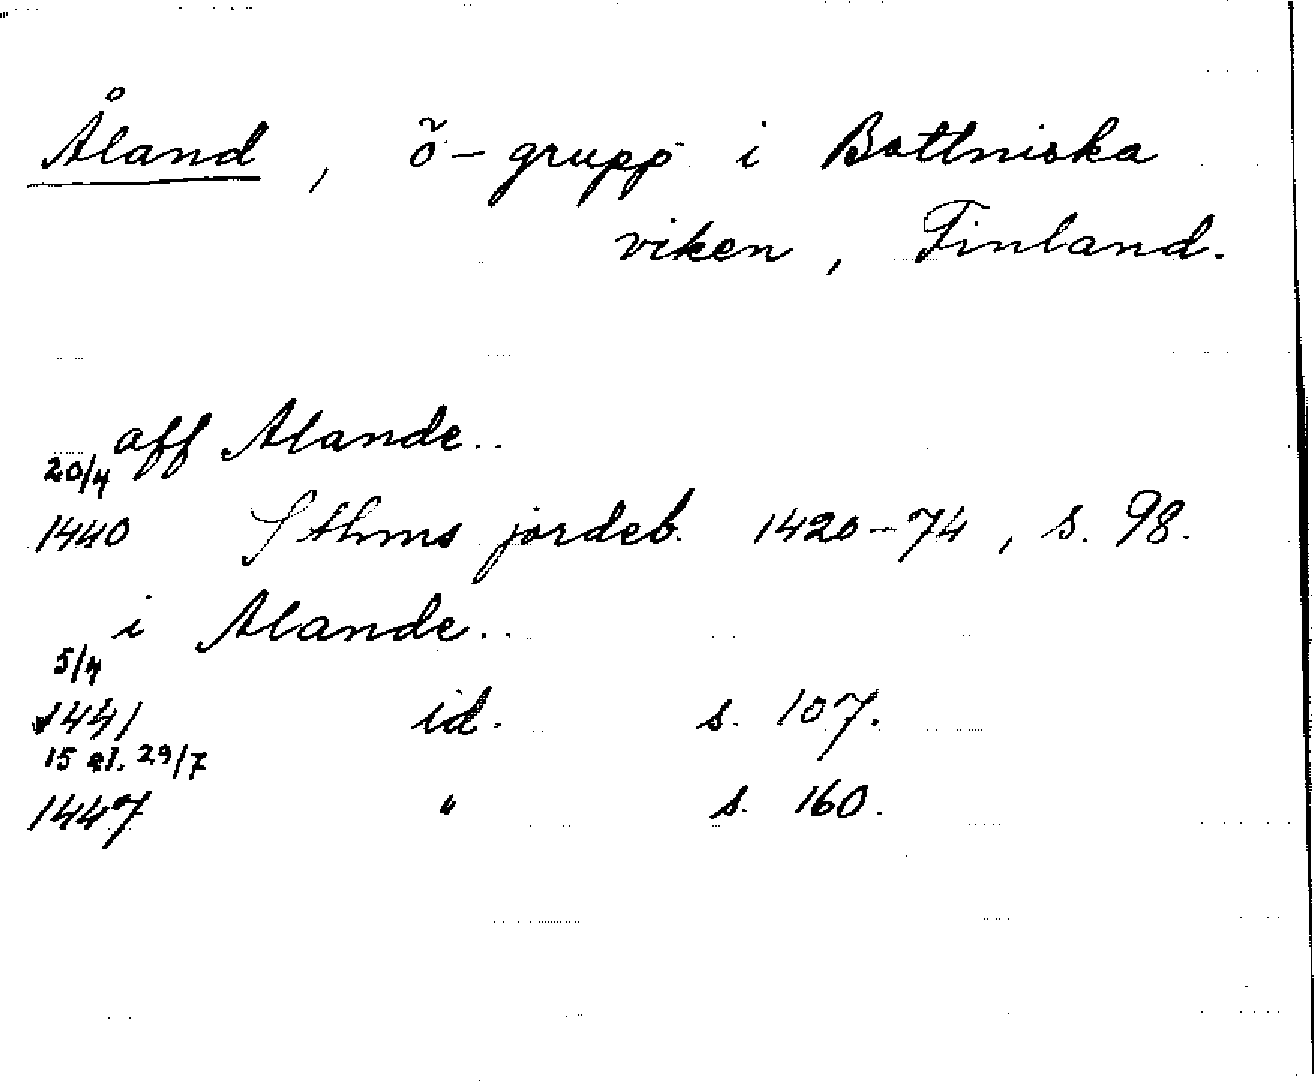 Åland, ö-grupp i Bottniska
viken, Finland.
aff Alande..
20/4
1440 Sthms jordeb. 1420-74, s. 98.
i Alande..
5/4
1441 id. s. 107.
15 el. 29/7
1447 " s. 160.